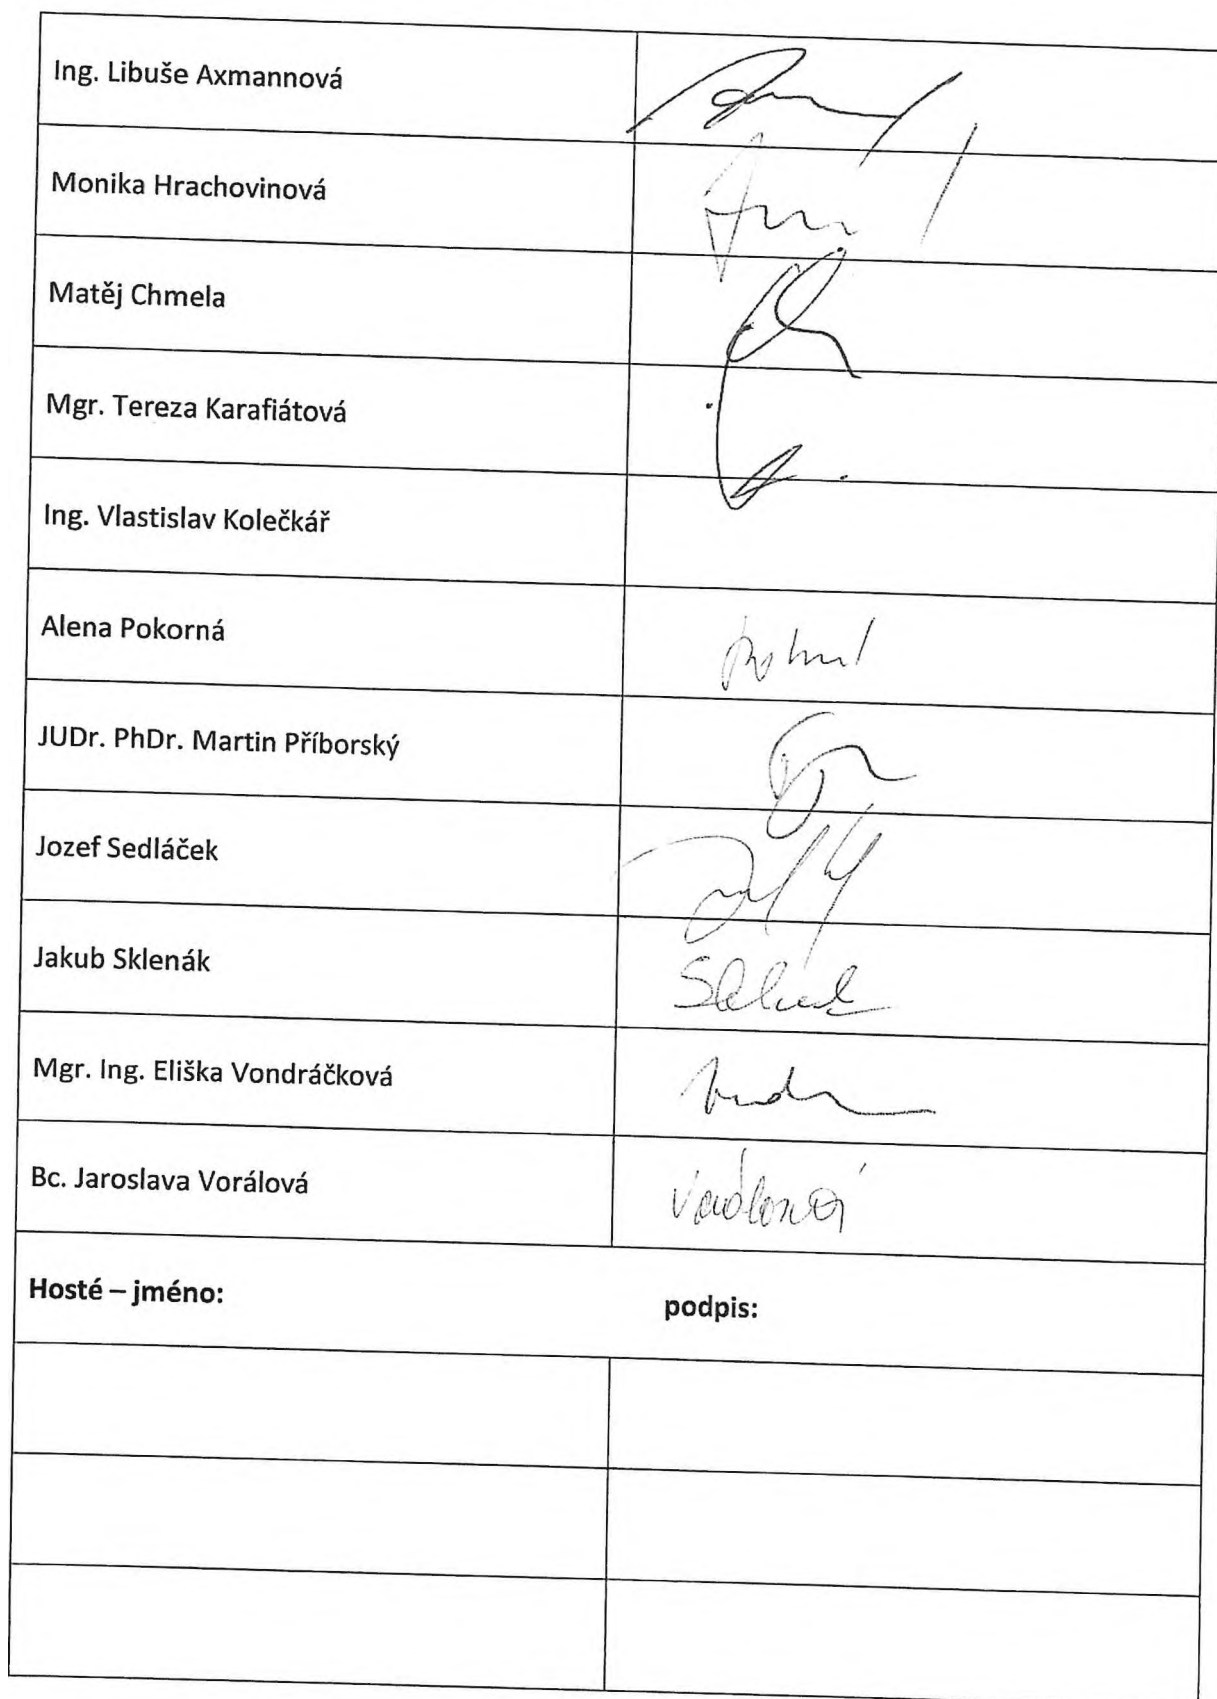 Ing. Libuše Axmannová
Monika Hrachovinová
Matěj Chmela
Mgr. Tereza Karafiátová
Ing. Vlastislav Kolečkář
Alena Pokorná
JUDr. PhDr. Martin Příborský
Jozef Sedláček
Jakub Sklenák
Mgr. Ing. Eliška Vondráčková
Bc. Jaroslava Vorálová
Vorálová
Hosté – jméno: podpis: